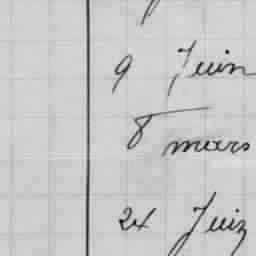 9 Juin
8 mars
24 Juin